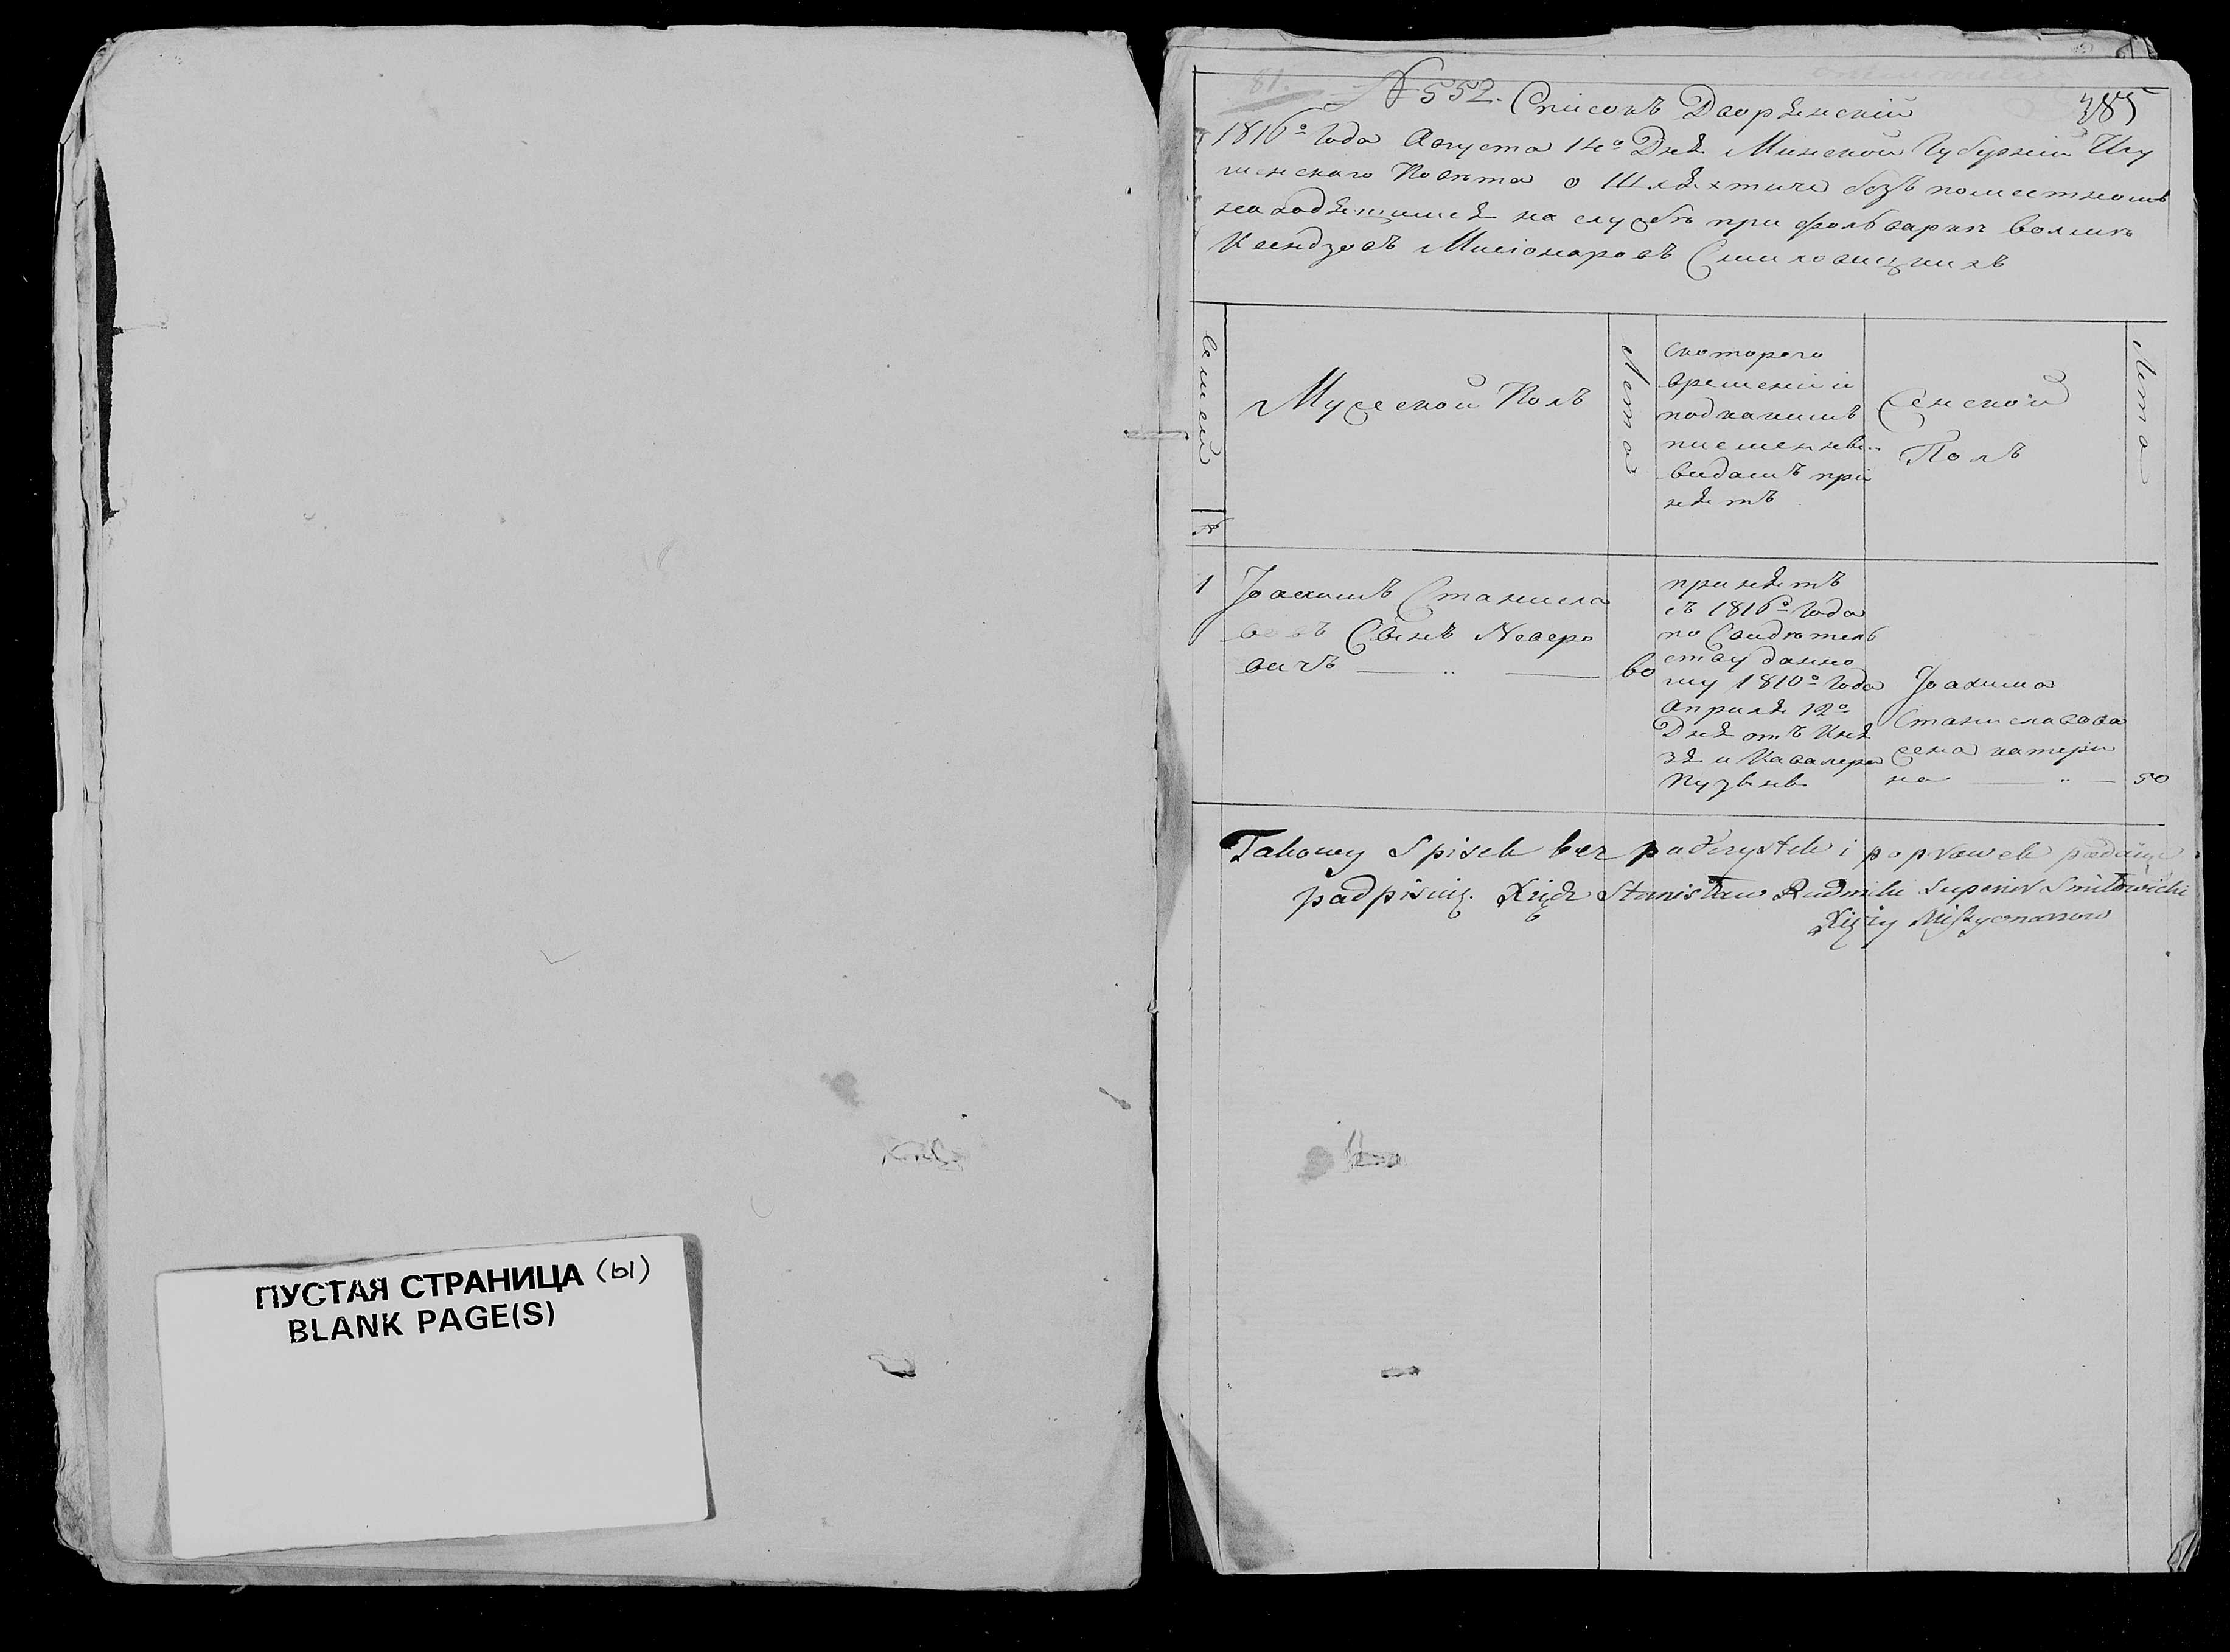 ПУСТАЯ СТРАНИЦА (ы)
BLANK PAGE(S)
81.
№ 552. Список Дворянский
385
1816го Года Августа 14го Дня Минской Губернии Игу
менскаго Повѣта о Шляхтиче безъ поместномъ
находящимся на службѣ при фольварке
Ксендзовъ Мисіонаровъ Смиловицкихъ
Семей
№
Мужеской Полъ
Лета
Скоторого
времени и
под какимъ
писменны
видомъ при
нятъ
Женской
Полъ
Лета
1
Іоахимъ Станисла
вовъ Сынъ Неверо
вичъ
60
принятъ
съ 1816го Года
по Свидѣтель
ству данно
му 1810го Года
Априля 12го
Дня отъ Кня
зя и Кавалера
Пузыны
Іоахима
Станиславова
жена катери
на
50
Takowy Spisek bez podczystek i poprawek podaiąc
podpisuię. Xiądz Stanisław Rudnicki Superior Smiłowicki
Xięży Missyonarzow